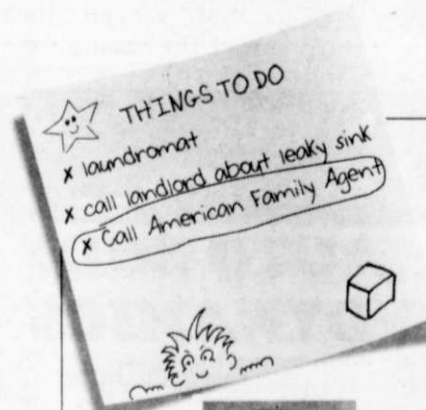 THINGS TO DO
x laundromat
x call landlord about leaky sink
x Call American Family Agent